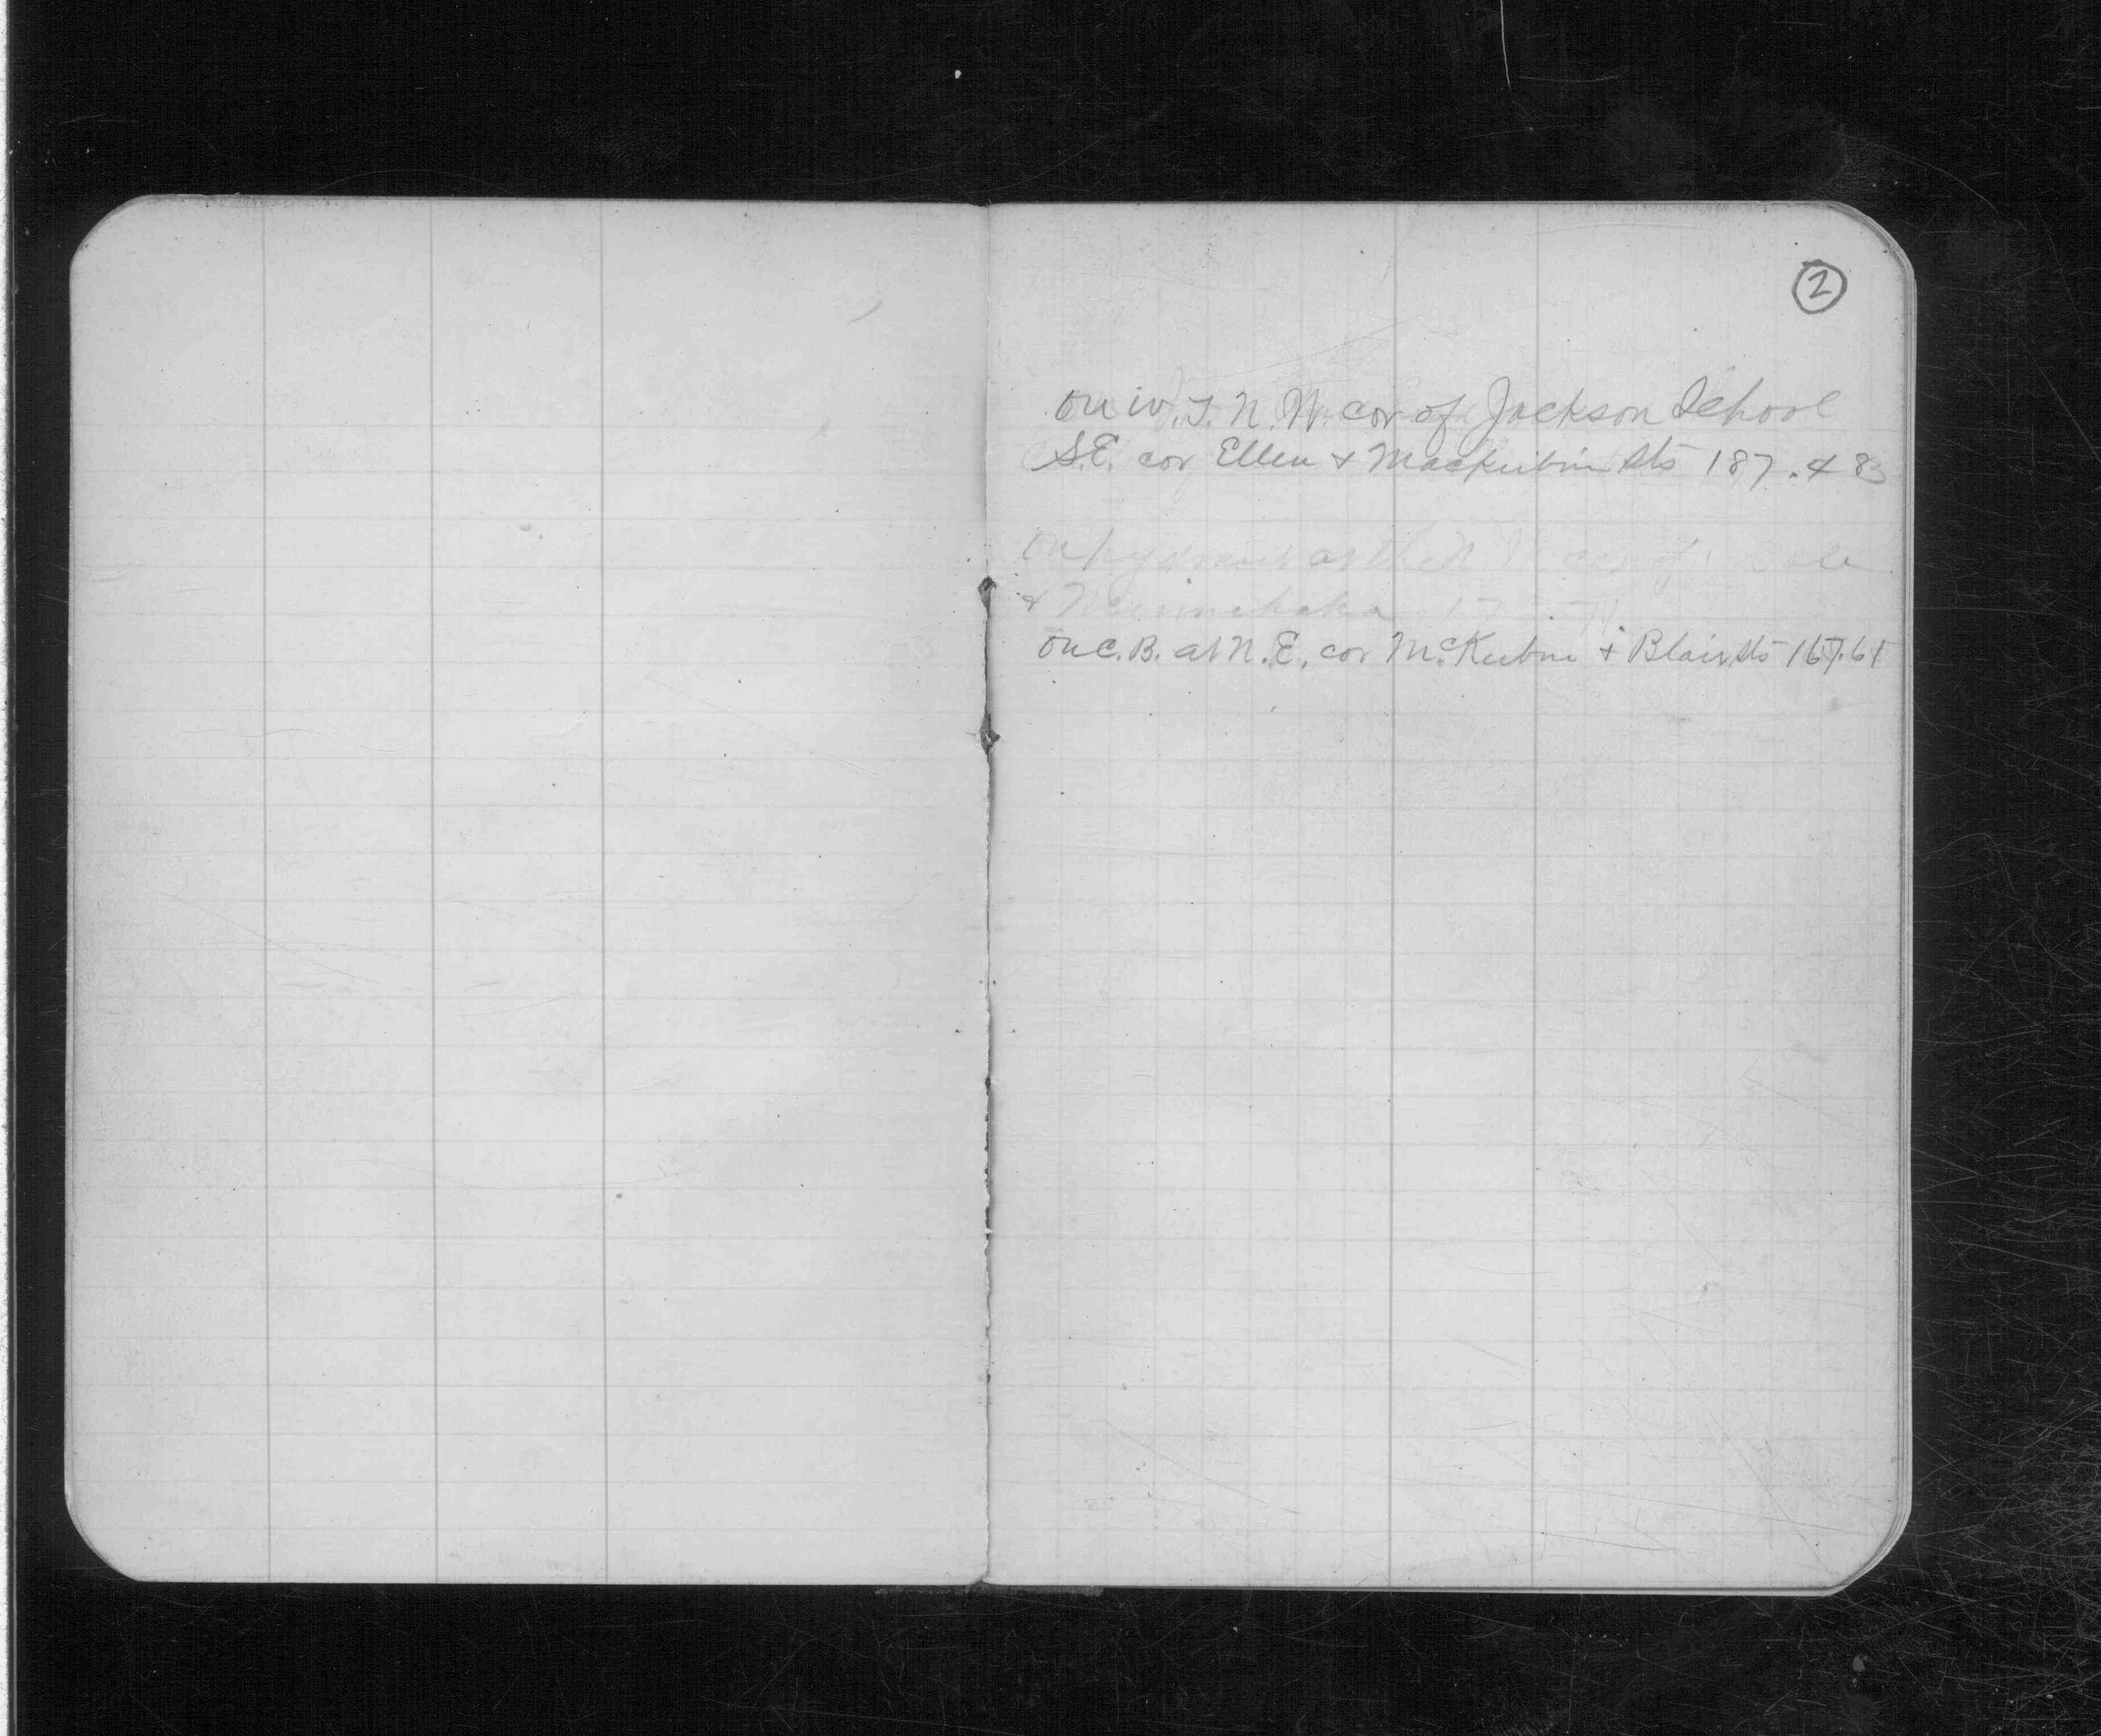 2
on W.T. N.W. cor of Jackson School
S.E. cor Ellen & Mackubin sts 187.483
on hydrant at the N cor of
& Minnehaha
on C.B. at N.E. cor McKubin & Blair sts 167.61